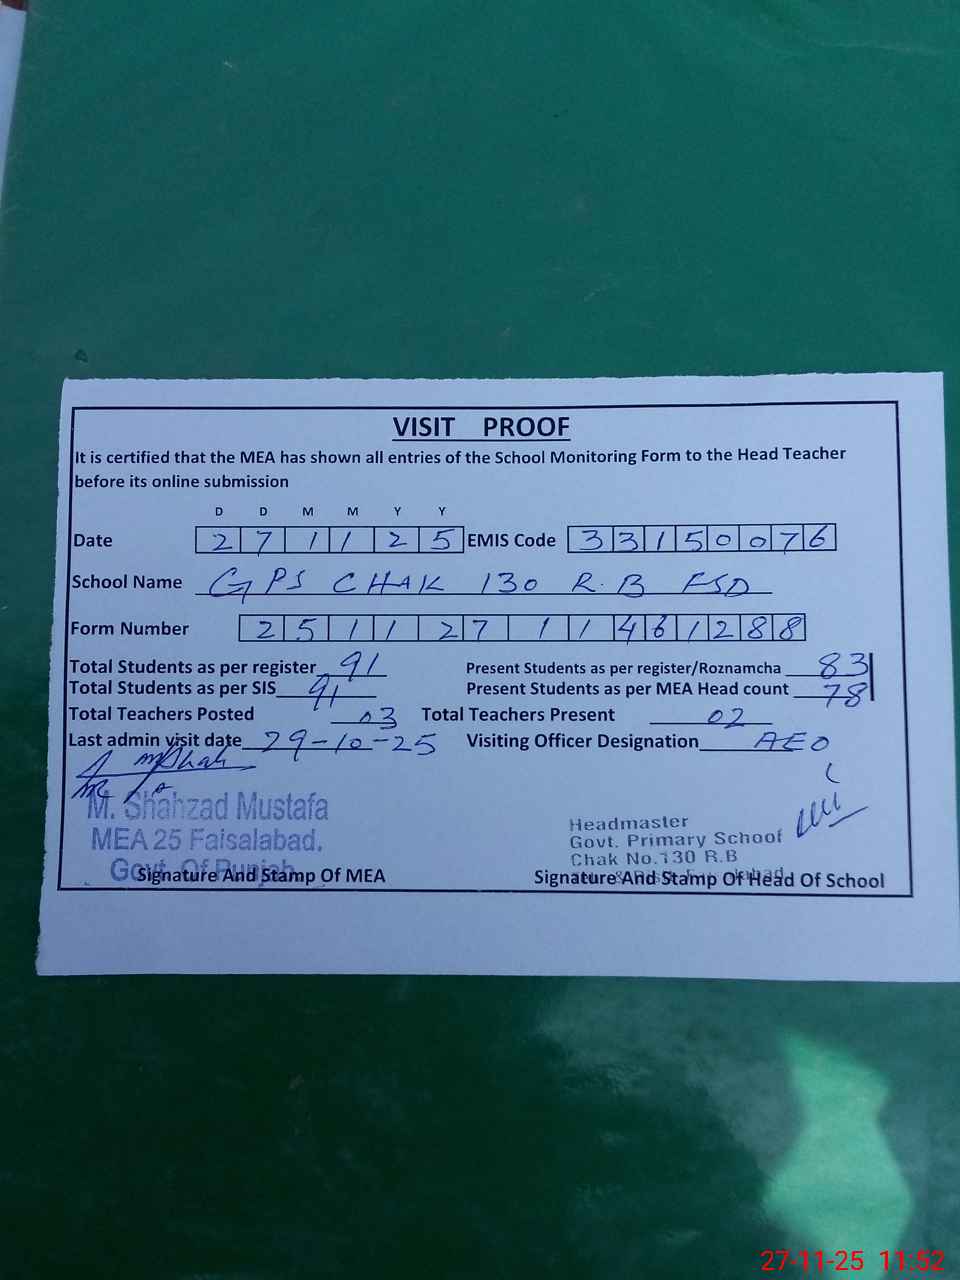 VISIT PROOF
It is certified that the MEA has shown all entries of the School Monitoring Form to the Head Teacher
before its online submission
D D M M Y Y
Date 2 7 1 1 2 5 EMIS Code 3 3 1 5 0 0 7 6
School Name GPS CHAK 130 R.B FSD
Form Number 2 5 1 1 2 7 1 1 4 6 1 2 8 8
Total Students as per register 91 Present Students as per register/Roznamcha 83
Total Students as per SIS 91 Present Students as per MEA Head count 78
Total Teachers Posted 03 Total Teachers Present 02
Last admin visit date 29-10-25 Visiting Officer Designation AEO
M. Shahzad Mustafa
MEA 25 Faisalabad.
Govt. Of Punjab
Signature And Stamp Of MEA
Headmaster
Govt. Primary School
Chak No.130 R.B
Signature And Stamp Of Head Of School
27-11-25 11:52